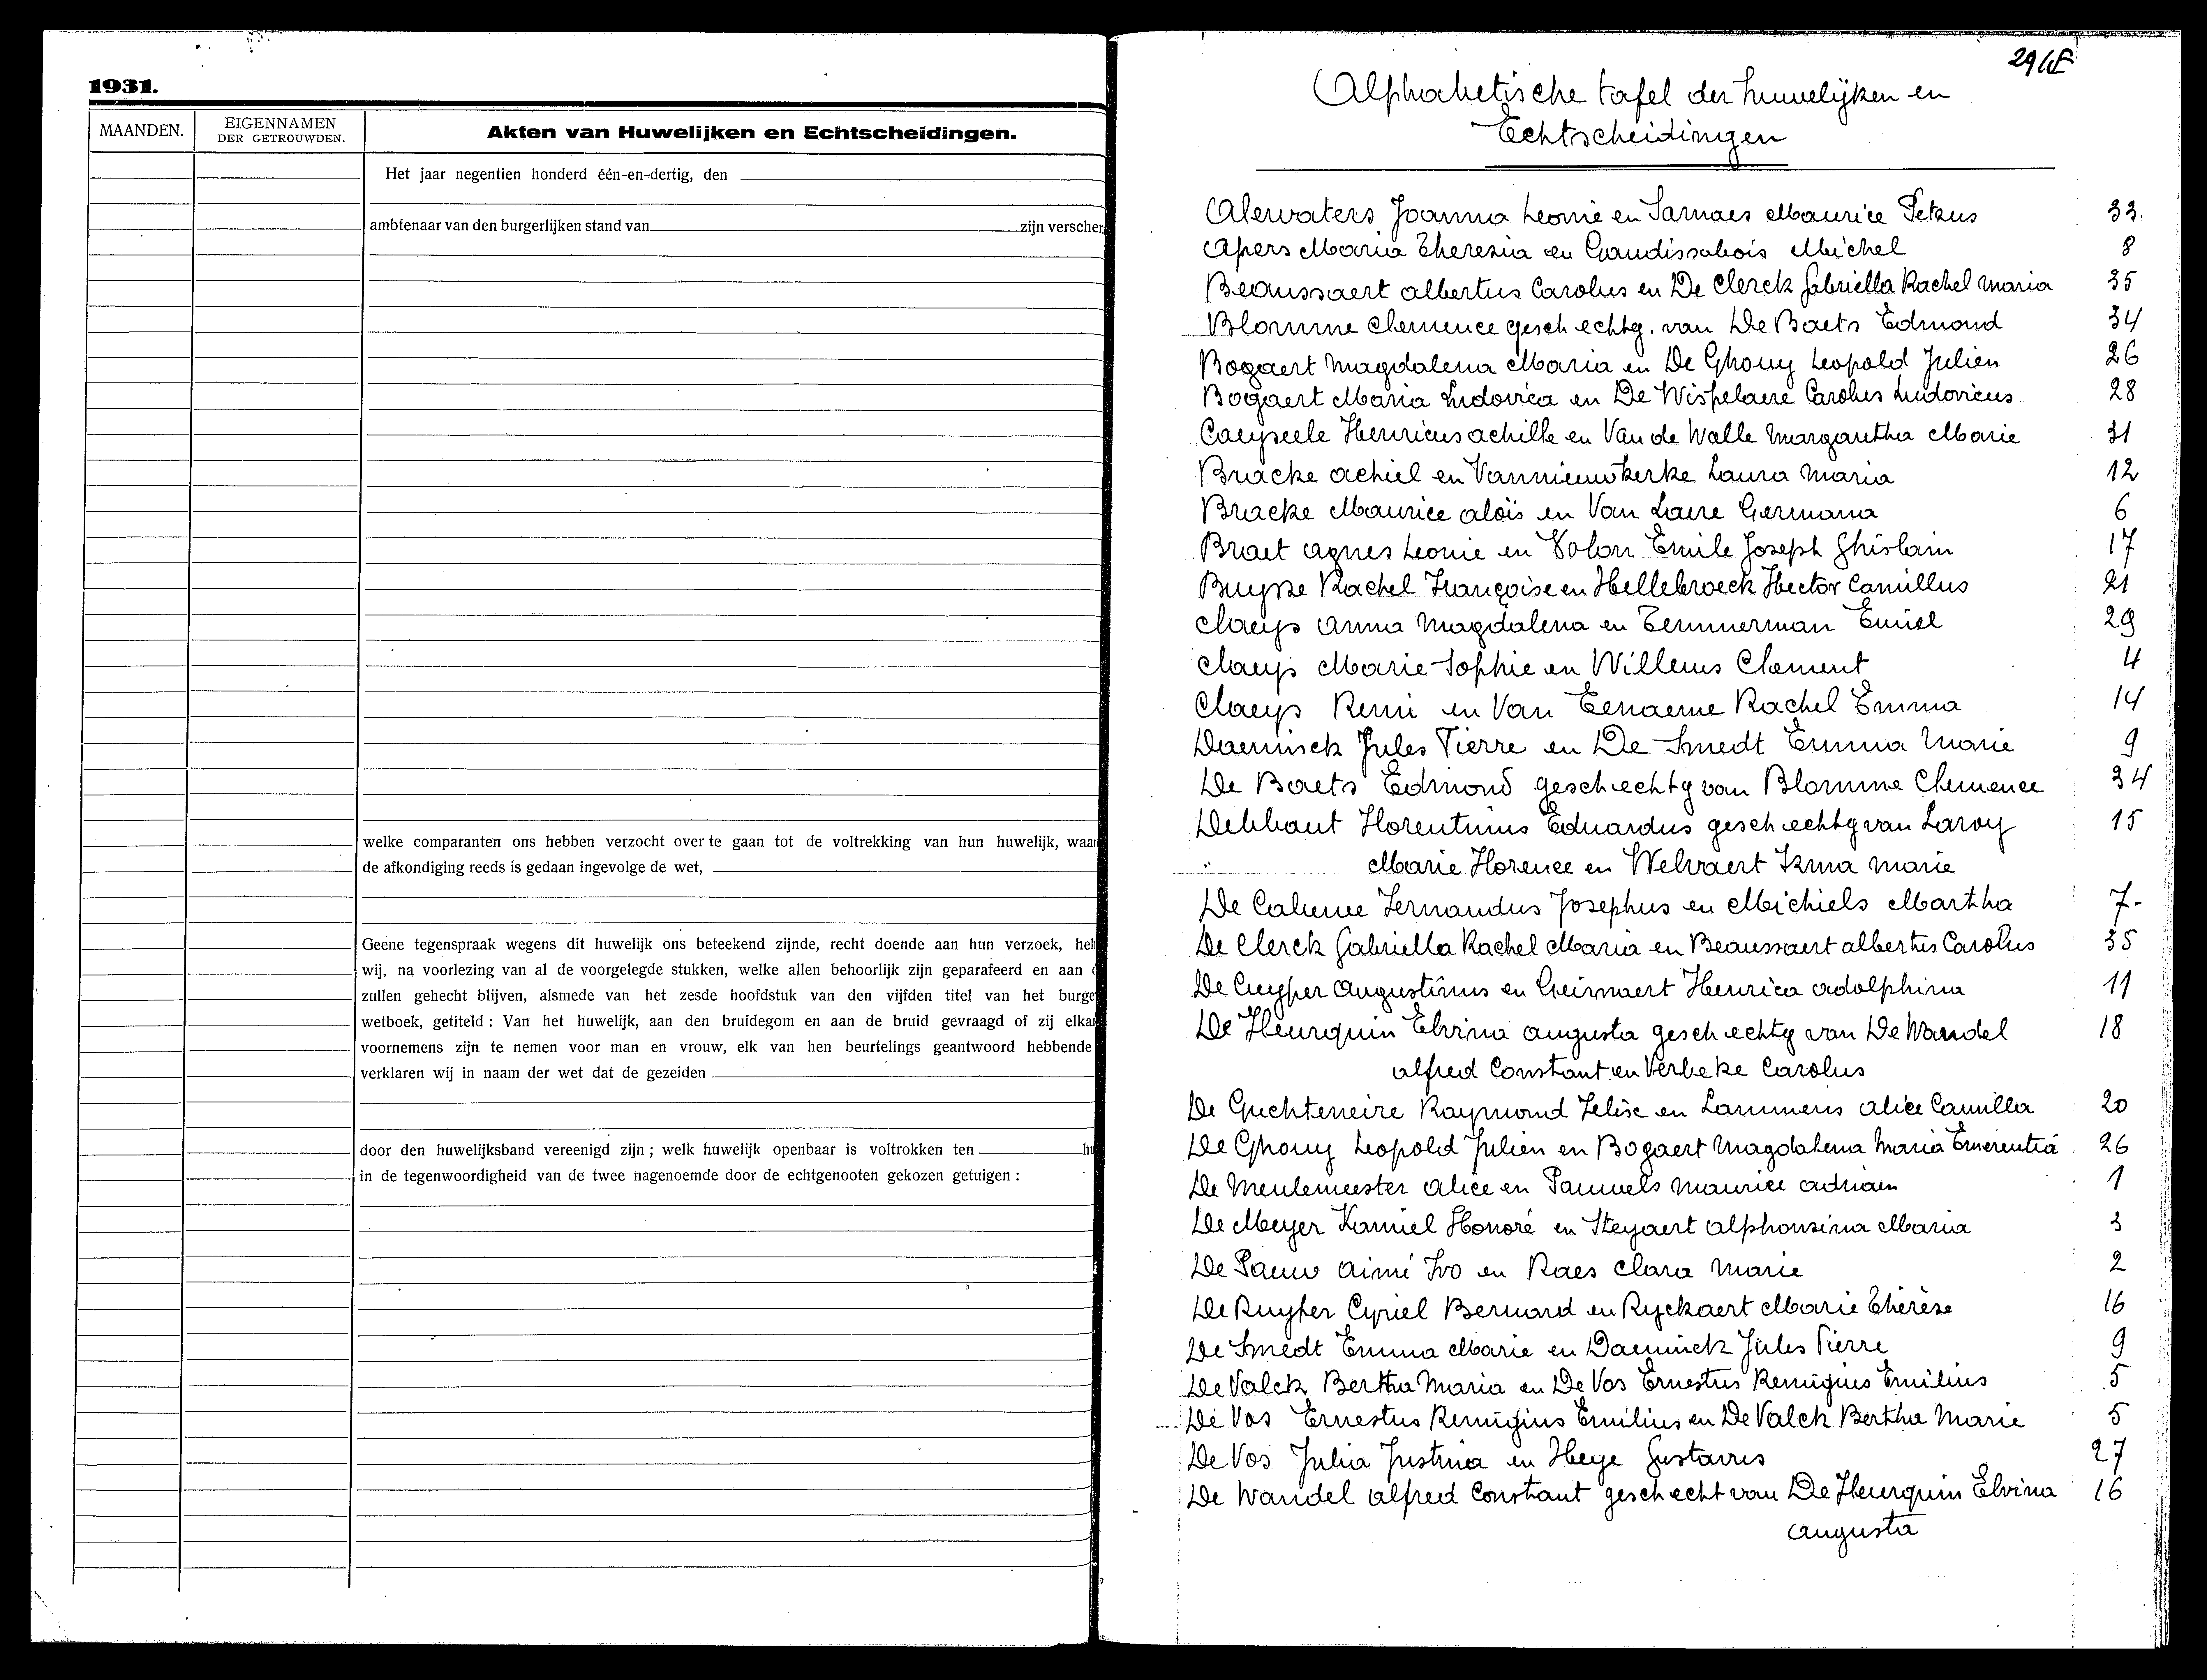 1931.
MAANDEN.
EIGENNAMEN
DER GETROUWDEN.
Akten van Huwelijken en Echtscheidingen.
Het jaar negentien honderd één-en-dertig, den
ambtenaar van den burgerlijken stand van zijn verschen
welke comparanten ons hebben verzocht over te gaan tot de voltrekking van hun huwelijk, waar
de afkondiging reeds is gedaan ingevolge de wet,
Geene tegenspraak wegens dit huwelijk ons beteekend zijnde, recht doende aan hun verzoek, heb
wij, na voorlezing van al de voorgelegde stukken, welke allen behoorlijk zijn geparafeerd en aan d
zullen gehecht blijven, alsmede van het zesde hoofdstuk van den vijfden titel van het burge
wetboek, getiteld : Van het huwelijk, aan den bruidegom en aan de bruid gevraagd of zij elkan
voornemens zijn te nemen voor man en vrouw, elk van hen beurtelings geantwoord hebbende
verklaren wij in naam der wet dat de gezeiden
door den huwelijksband vereenigd zijn ; welk huwelijk openbaar is voltrokken ten hu
in de tegenwoordigheid van de twee nagenoemde door de echtgenooten gekozen getuigen :
29
Alphabetische tafel der huwelijken en
Echtscheidingen
Alewaters Joanna Leonie en Sarnaes Maurice Petrus 33.
Apers Maria Theresia en Gaudissabois Michel 8
Beaussaert Albertus Carolus en De Clerck Gabriella Rachel Maria 35
Blomme Clemence gesch echtg. van De Baets Edmond 34
Bogaert Magdalena Maria en De Ghouy Leopold Julien 26
Bogaert Maria Ludovica en De Wispelaere Carolus Ludovicus 28
Caeyseele Henricus Achille en Van de Walle Margaretha Marie 31
Bracke Achiel en Vannieuwkerke Laura Maria 12
Bracke Maurice Aloïs en Van Laere Germana 6
Braet Agnes Leonie en Volon Emile Joseph Ghislain 17
Buysse Rachel Françoise en Hellebroeck Hector Camillus 21
Claeys Anna Magdalena en Temmerman Emiel 29
Claeys Marie Sophie en Willems Clement 4
Claeys Remi en Van Eenaeme Rachel Emma 14
Daeninck Jules Pierre en De Smedt Emma Marie 9
De Baets Edmond gesch echtg van Blomme Clemence 34
Debbaut Florentinus Eduardus gesch echtg van Laroy 15
Marie Florence en Welvaert Irma Marie
De Caluwe Fernandus Josephus en Michiels Martha 7-
De Clerck Gabriella Rachel Maria en Beaussaert Albertus Carolus 35
De Cuyper Augustinus en Geirnaert Henrica Adolphina 11
De Fleurquin Elvina Augusta gesch echtg van De Wandel 18
Alfred Constant en Verbeke Carolus
De Guchteneire Raymond Felix en Lammens Alice Camilla 20
De Ghouy Leopold Julien en Bogaert Magdalena Maria Emerentia 26
De Meulemeester Alice en Pauwels Maurice Adriaen 1
De Meyer Kamiel Honoré en Steyaert Alphonsina Maria 3
De Pauw Aimé Ivo en Raes Clara Marie 2
De Ruyter Cyriel Bernard en Ryckaert Marie Thérèse 16
De Smedt Emma Marie en Daeninck Jules Pierre 9
De Valck Bertha Maria en De Vos Ernestus Remigius Emilius 5
De Vos Ernestus Remigius Emilius en De Valck Bertha Marie 5
De Vos Julia Justina en Heye Gustavus 27
De Wandel Alfred Constant gesch echt van De Fleurquin Elvina 16
Augusta